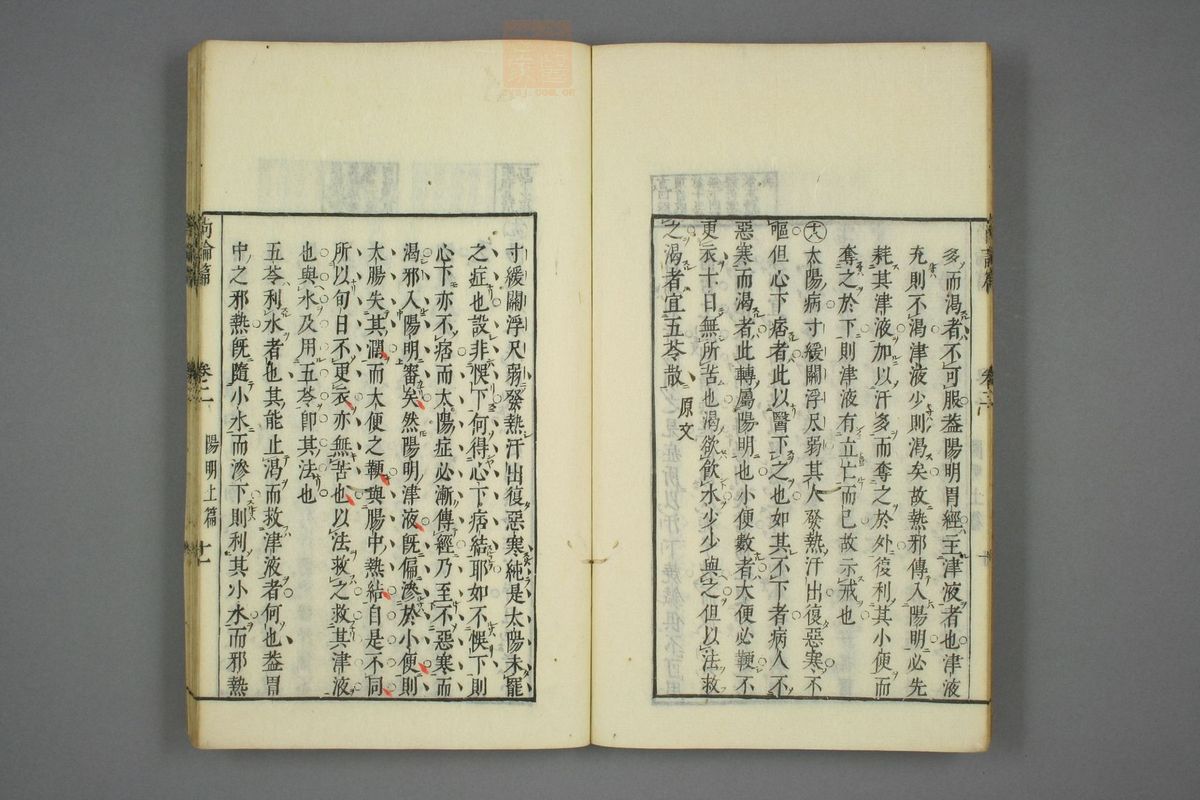 多而渴者不可服蓋陽明胃經主津液者也津液
充則不渴津液少則渴矣故熱邪傳入陽明必先
耗其津液加以汗多而奪之於外復利其小便而
奪之於下則津液有立亡而已故示戒也
十八太陽病寸緩關浮尺弱其人發熱汗出復惡寒不
嘔但心下痞者此以醫下之也如其不下者病人不
惡寒而渴者此轉屬陽明也小便數者大便必鞕不
更衣十日無所苦也渴欲飲水少少與之但以法救
之渴者宜五苓散 原文
寸緩關浮尺弱發熱汗出復惡寒純是太陽未罷
之症也設非悞下何得心下痞結耶如不悞下則
心下亦不痞而太陽症必漸傳經乃至不惡寒而
渴邪入陽明審矣然陽明津液旣偏滲於小便則
大腸失其潤而大便之鞕與腸中熱結自是不同
所以旬日不更衣亦無苦也以法救之救其津液
也與水及用五苓卽其法也
五苓利水者也其能止渴而救津液者何也蓋胃
中之邪熱旣隨小水而滲下則利其小水而邪熱
尚論篇
卷二
陽明上篇
十一
zysj.com.cn